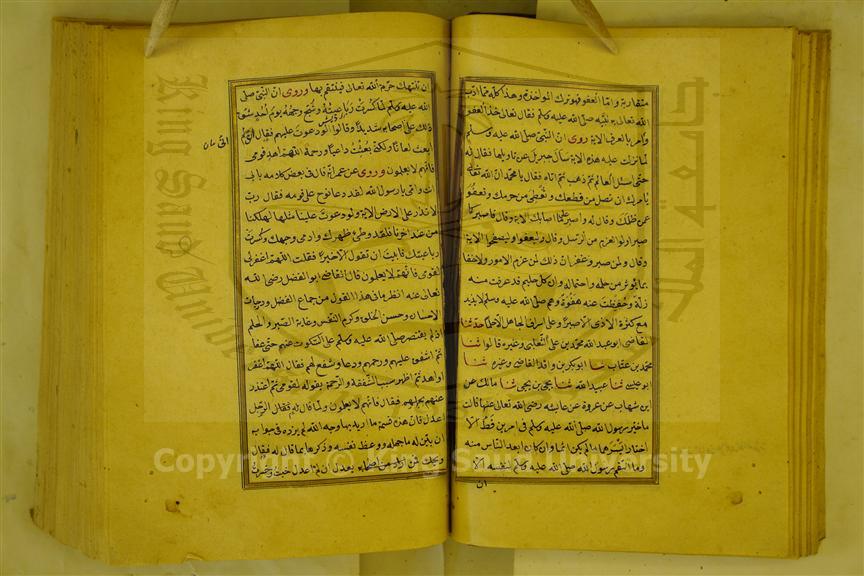 متقاربة واما العفو فهو ترك المواخذة وهذا كله مما ادب
الله تعالى به نبيه صلى الله عليه وسلم فقال تعالى خذ العفو
وأمر بالعرف الاية روى ان النبي صلى الله عليه وسلم
لما نزلت عليه هذه الاية سأل جبريل عن تأويلها فقال له
حتى اسئل العالم ثم ذهب ثم اتاه فقال يا محمد ان الله تعالى
يأمرك ان تصل من قطعك وتعطى من حرمك وتعفو
عن ظلمك وقال له واصبر على ما اصابك الاية وقال فاصبر كما
صبر اولوا العزم من الرسل وقال وليعفوا وليصفحوا الاية
وقال ولمن صبر وغفر ان ذلك لمن عزم الامور ولا خفا
بما يؤثر من حلمه واحتماله وان كل حليم قد عرفت منه
زلة وحفظت عنه هفوة وهو صلى الله عليه وسلم لا يزيد
مع كثرة الاذى الا صبرا وعلى اسراف الجاهل الا حلما حدثنا
القاضي ابو عبد الله محمد بن على التغلبي وغيره قالوا ثنا
محمد بن عتاب ثنا ابو بكر بن واقد القاضي وغيره ثنا
ابو عيسى ثنا عبيد الله ثنا يحيى بن يحيى ثنا مالك عن
ابن شهاب عن عروة عن عايشه رضى الله تعالى عنها قالت
ما خير رسول الله صلى الله عليه وسلم في امرين قط الا
اختار ايسرهما ما لم يكن اثما وان كان اثما كان ابعد الناس منه
وما انتقم رسول الله صلى الله عليه وسلم لنفسه الا
ان
ان تنتهك حرمة الله تعالى فينتقم بها وروى ان النبي صلى
الله عليه وسلم لما كسرت رباعيته وشج وجهه يوم احد شق
ذلك على اصحابه شديدا وقالوا لو دعوت عليهم فقال اني لم
ابعث لعانا ولكني بعثت داعيا ورحمة اللهم اهد قومي
فانهم لا يعلمون وروى عن عمر انه قال في بعض كلامه بابى
انت وامى يا رسول الله لقد دعا نوح على قومه فقال رب
لا تذر على الارض الاية ولو دعوت علينا مثلها لهلكنا
من عند اخرنا فلقد وطئ ظهرك وادمى وجهك وكسرت
رباعيتك فابيت ان تقول الا خيرا فقلت اللهم اغفر
لقومي فانهم لا يعلمون قال القاضي ابو الفضل رضى الله
تعالى عنه انظر ما في هذا القول من جماع الفضل ودرجات
الاحسان وحسن الخلق وكرم النفس وغاية الصبر والحلم
اذ لم يقتصر صلى الله عليه وسلم على السكوت عنهم حتى عفا
ثم اشفق عليهم ورحمهم ودعا وشفع لهم فقال اللهم اغفر
او اهد ثم اظهر سبب الشفقة والرحمة بقوله لقومي ثم اعتذر
عنهم بجهلهم فقال فانهم لا يعلمون ولما قال له الرجل
اعدل فان هذه قسمة ما اريد بها وجه الله لم يزده في جوابه
ان بين له ما جهله ووعظ نفسه وذكرها بما قال له فقال
ويحك فمن يعدل ان لم اعدل خبت وخسرت
Copyright © King Saud University
King Saud University
جامعة الملك سعود